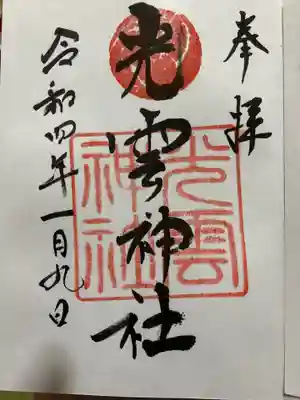 奉拝
光雲神社
光雲
神社
令和四年一月九日